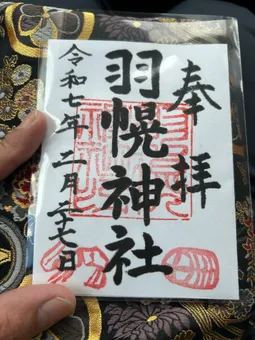 奉拝
羽幌神社
令和七年二月二十七日